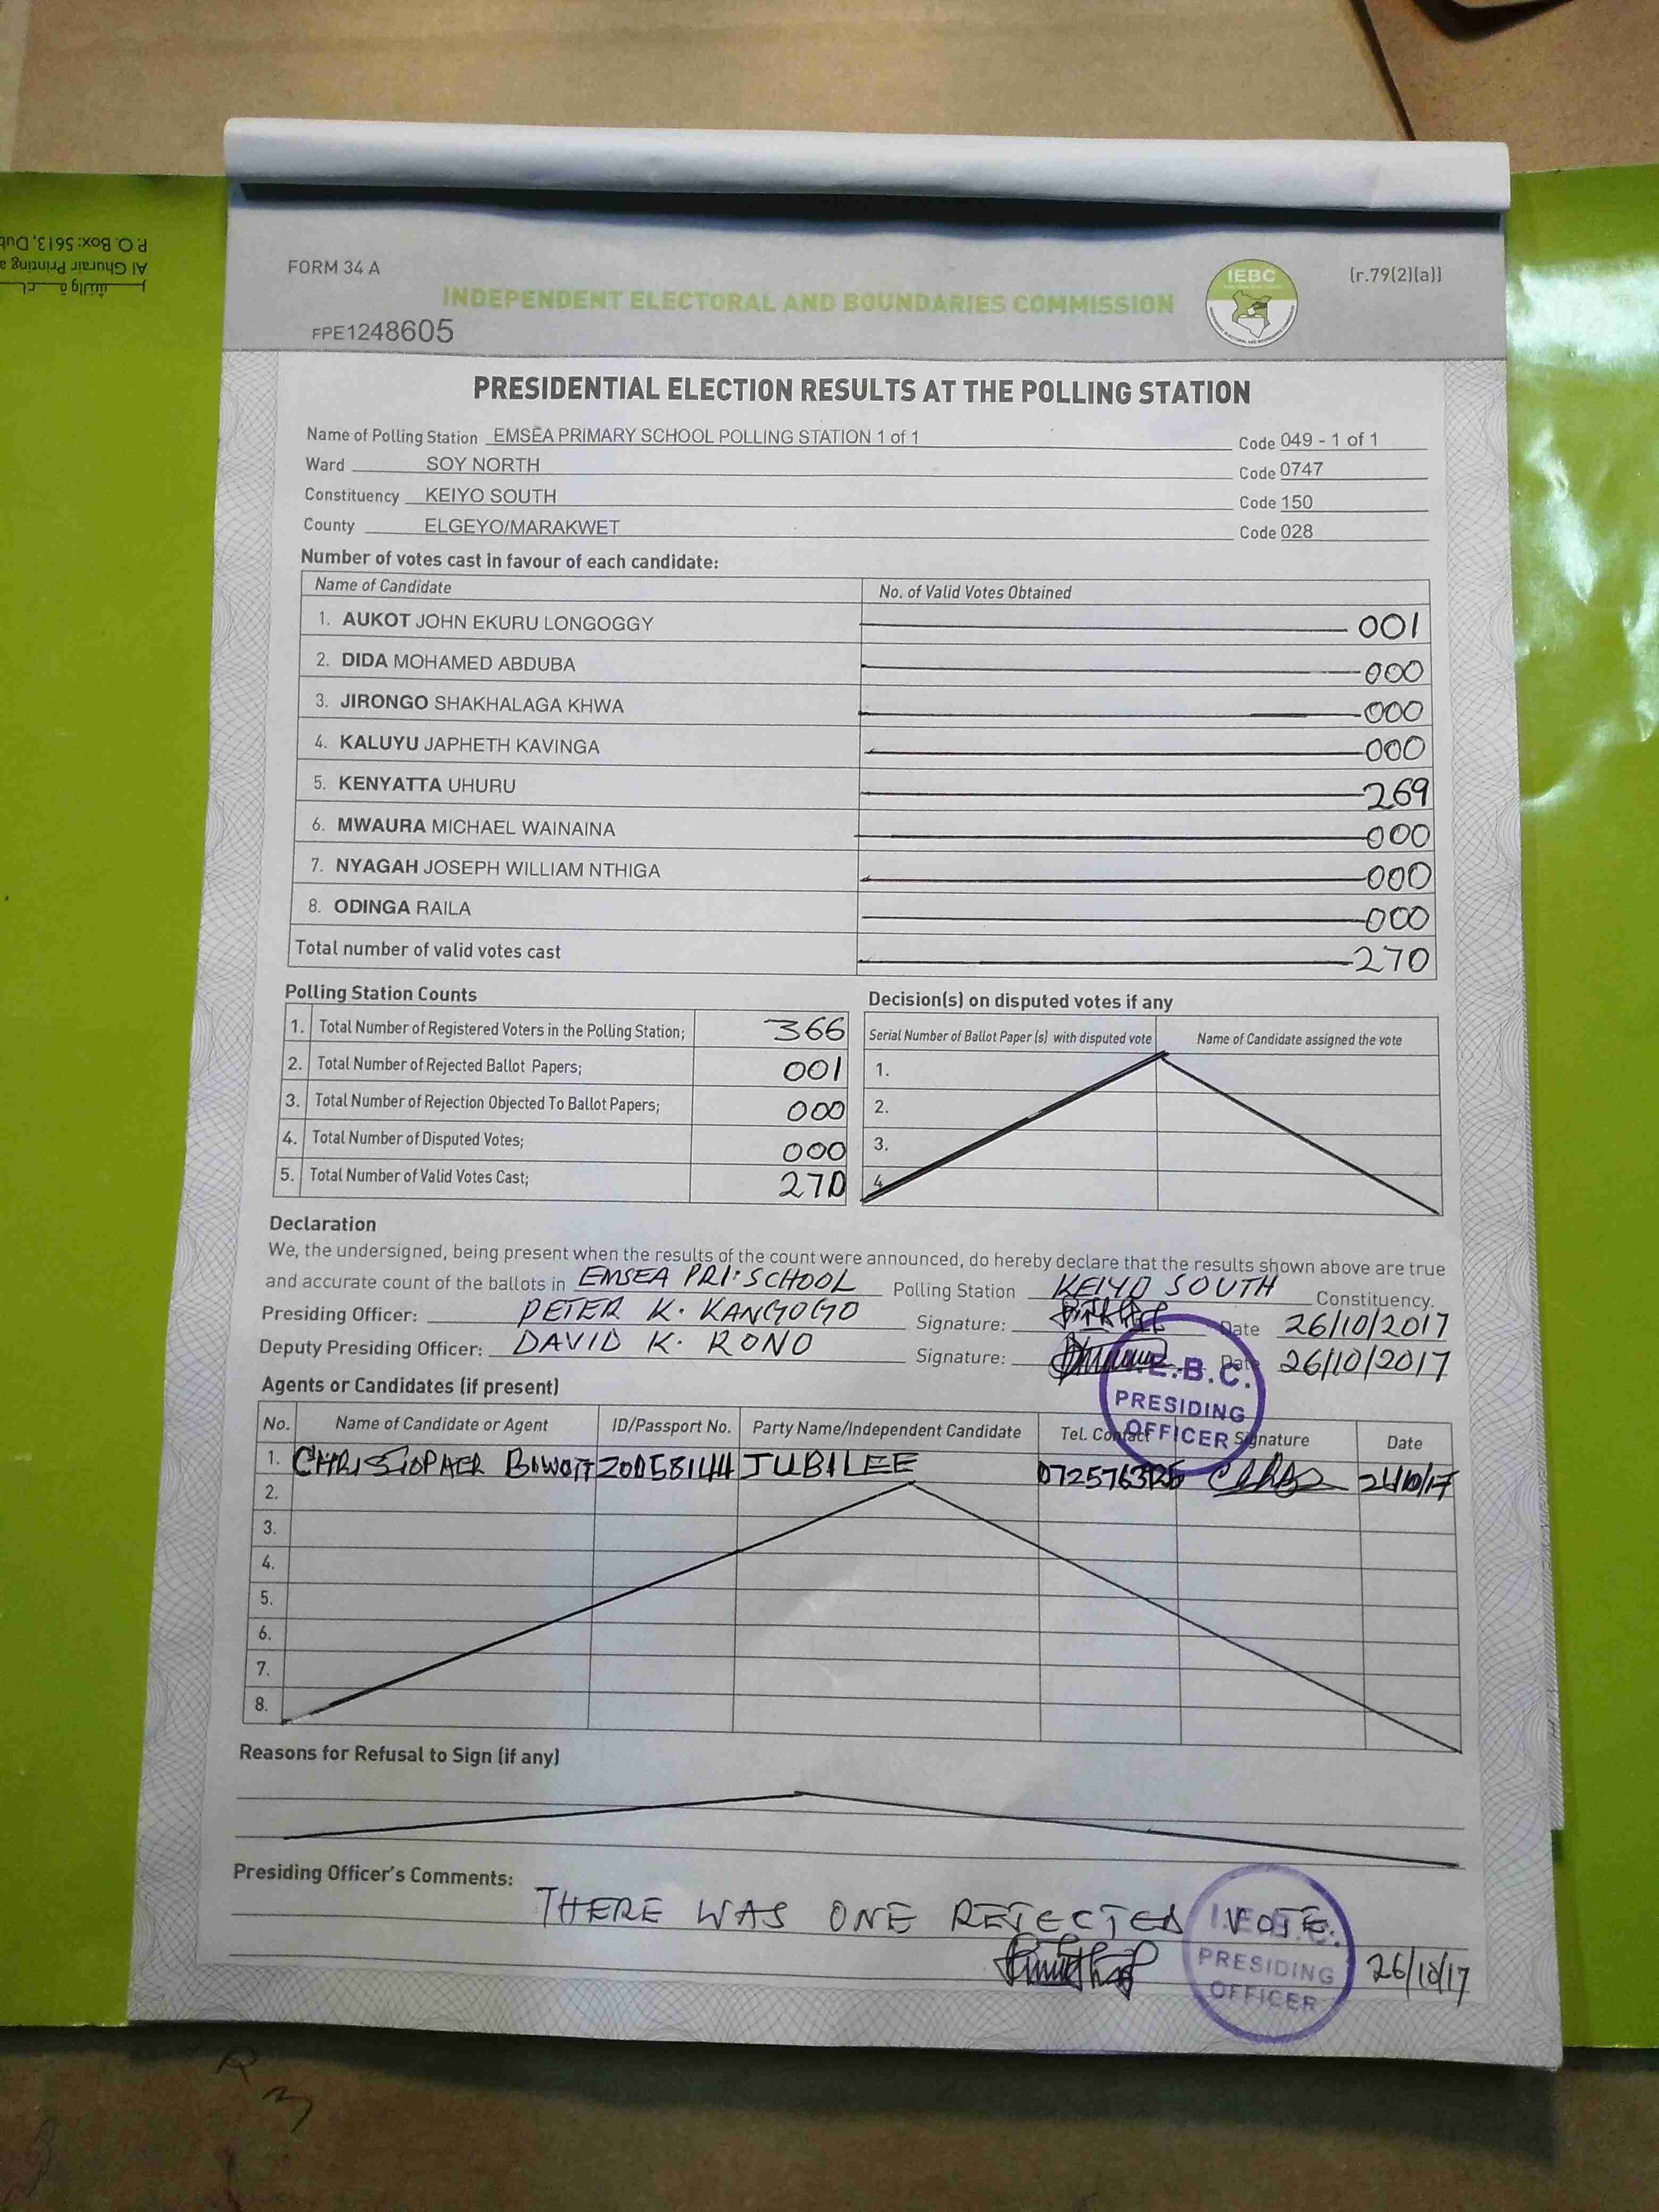 P.O. Box: 5613, Dub
Al Ghurair Printing a
FORM 34 A
IEBC
[r.79(2)(a)]
INDEPENDENT ELECTORAL AND BOUNDARIES COMMISSION
FPE1248605
PRESIDENTIAL ELECTION RESULTS AT THE POLLING STATION
Name of Polling Station EMSEA PRIMARY SCHOOL POLLING STATION 1 of 1 Code 049 - 1 of 1
Ward SOY NORTH Code 0747
Constituency KEIYO SOUTH Code 150
County ELGEYO/MARAKWET Code 028
Number of votes cast in favour of each candidate:
Name of Candidate No. of Valid Votes Obtained
1. AUKOT JOHN EKURU LONGOGGY 001
2. DIDA MOHAMED ABDUBA 000
3. JIRONGO SHAKHALAGA KHWA 000
4. KALUYU JAPHETH KAVINGA 000
5. KENYATTA UHURU 269
6. MWAURA MICHAEL WAINAINA 000
7. NYAGAH JOSEPH WILLIAM NTHIGA 000
8. ODINGA RAILA 000
Total number of valid votes cast 270
Polling Station Counts
1. Total Number of Registered Voters in the Polling Station; 366
2. Total Number of Rejected Ballot Papers; 001
3. Total Number of Rejection Objected To Ballot Papers; 000
4. Total Number of Disputed Votes; 000
5. Total Number of Valid Votes Cast; 270
Decision(s) on disputed votes if any
Serial Number of Ballot Paper (s) with disputed vote Name of Candidate assigned the vote
1.
2.
3.
4.
Declaration
We, the undersigned, being present when the results of the count were announced, do hereby declare that the results shown above are true
and accurate count of the ballots in EMSEA PRI: SCHOOL Polling Station KEIYO SOUTH Constituency.
Presiding Officer: PETER K. KANGOGO Signature: Date 26/10/2017
Deputy Presiding Officer: DAVID K. RONO Signature: Date 26/10/2017
I.E.B.C.
PRESIDING
OFFICER
Agents or Candidates (if present)
No. Name of Candidate or Agent ID/Passport No. Party Name/Independent Candidate Tel. Contact Signature Date
1. CHRISTOPHER BIWOTT 20058144 JUBILEE
2.
3.
4.
5.
6.
7.
8.
Reasons for Refusal to Sign (if any)
Presiding Officer's Comments:
THERE WAS ONE REJECTED VOTE.
26/10/17
I.E.B.C.
PRESIDING
OFFICER